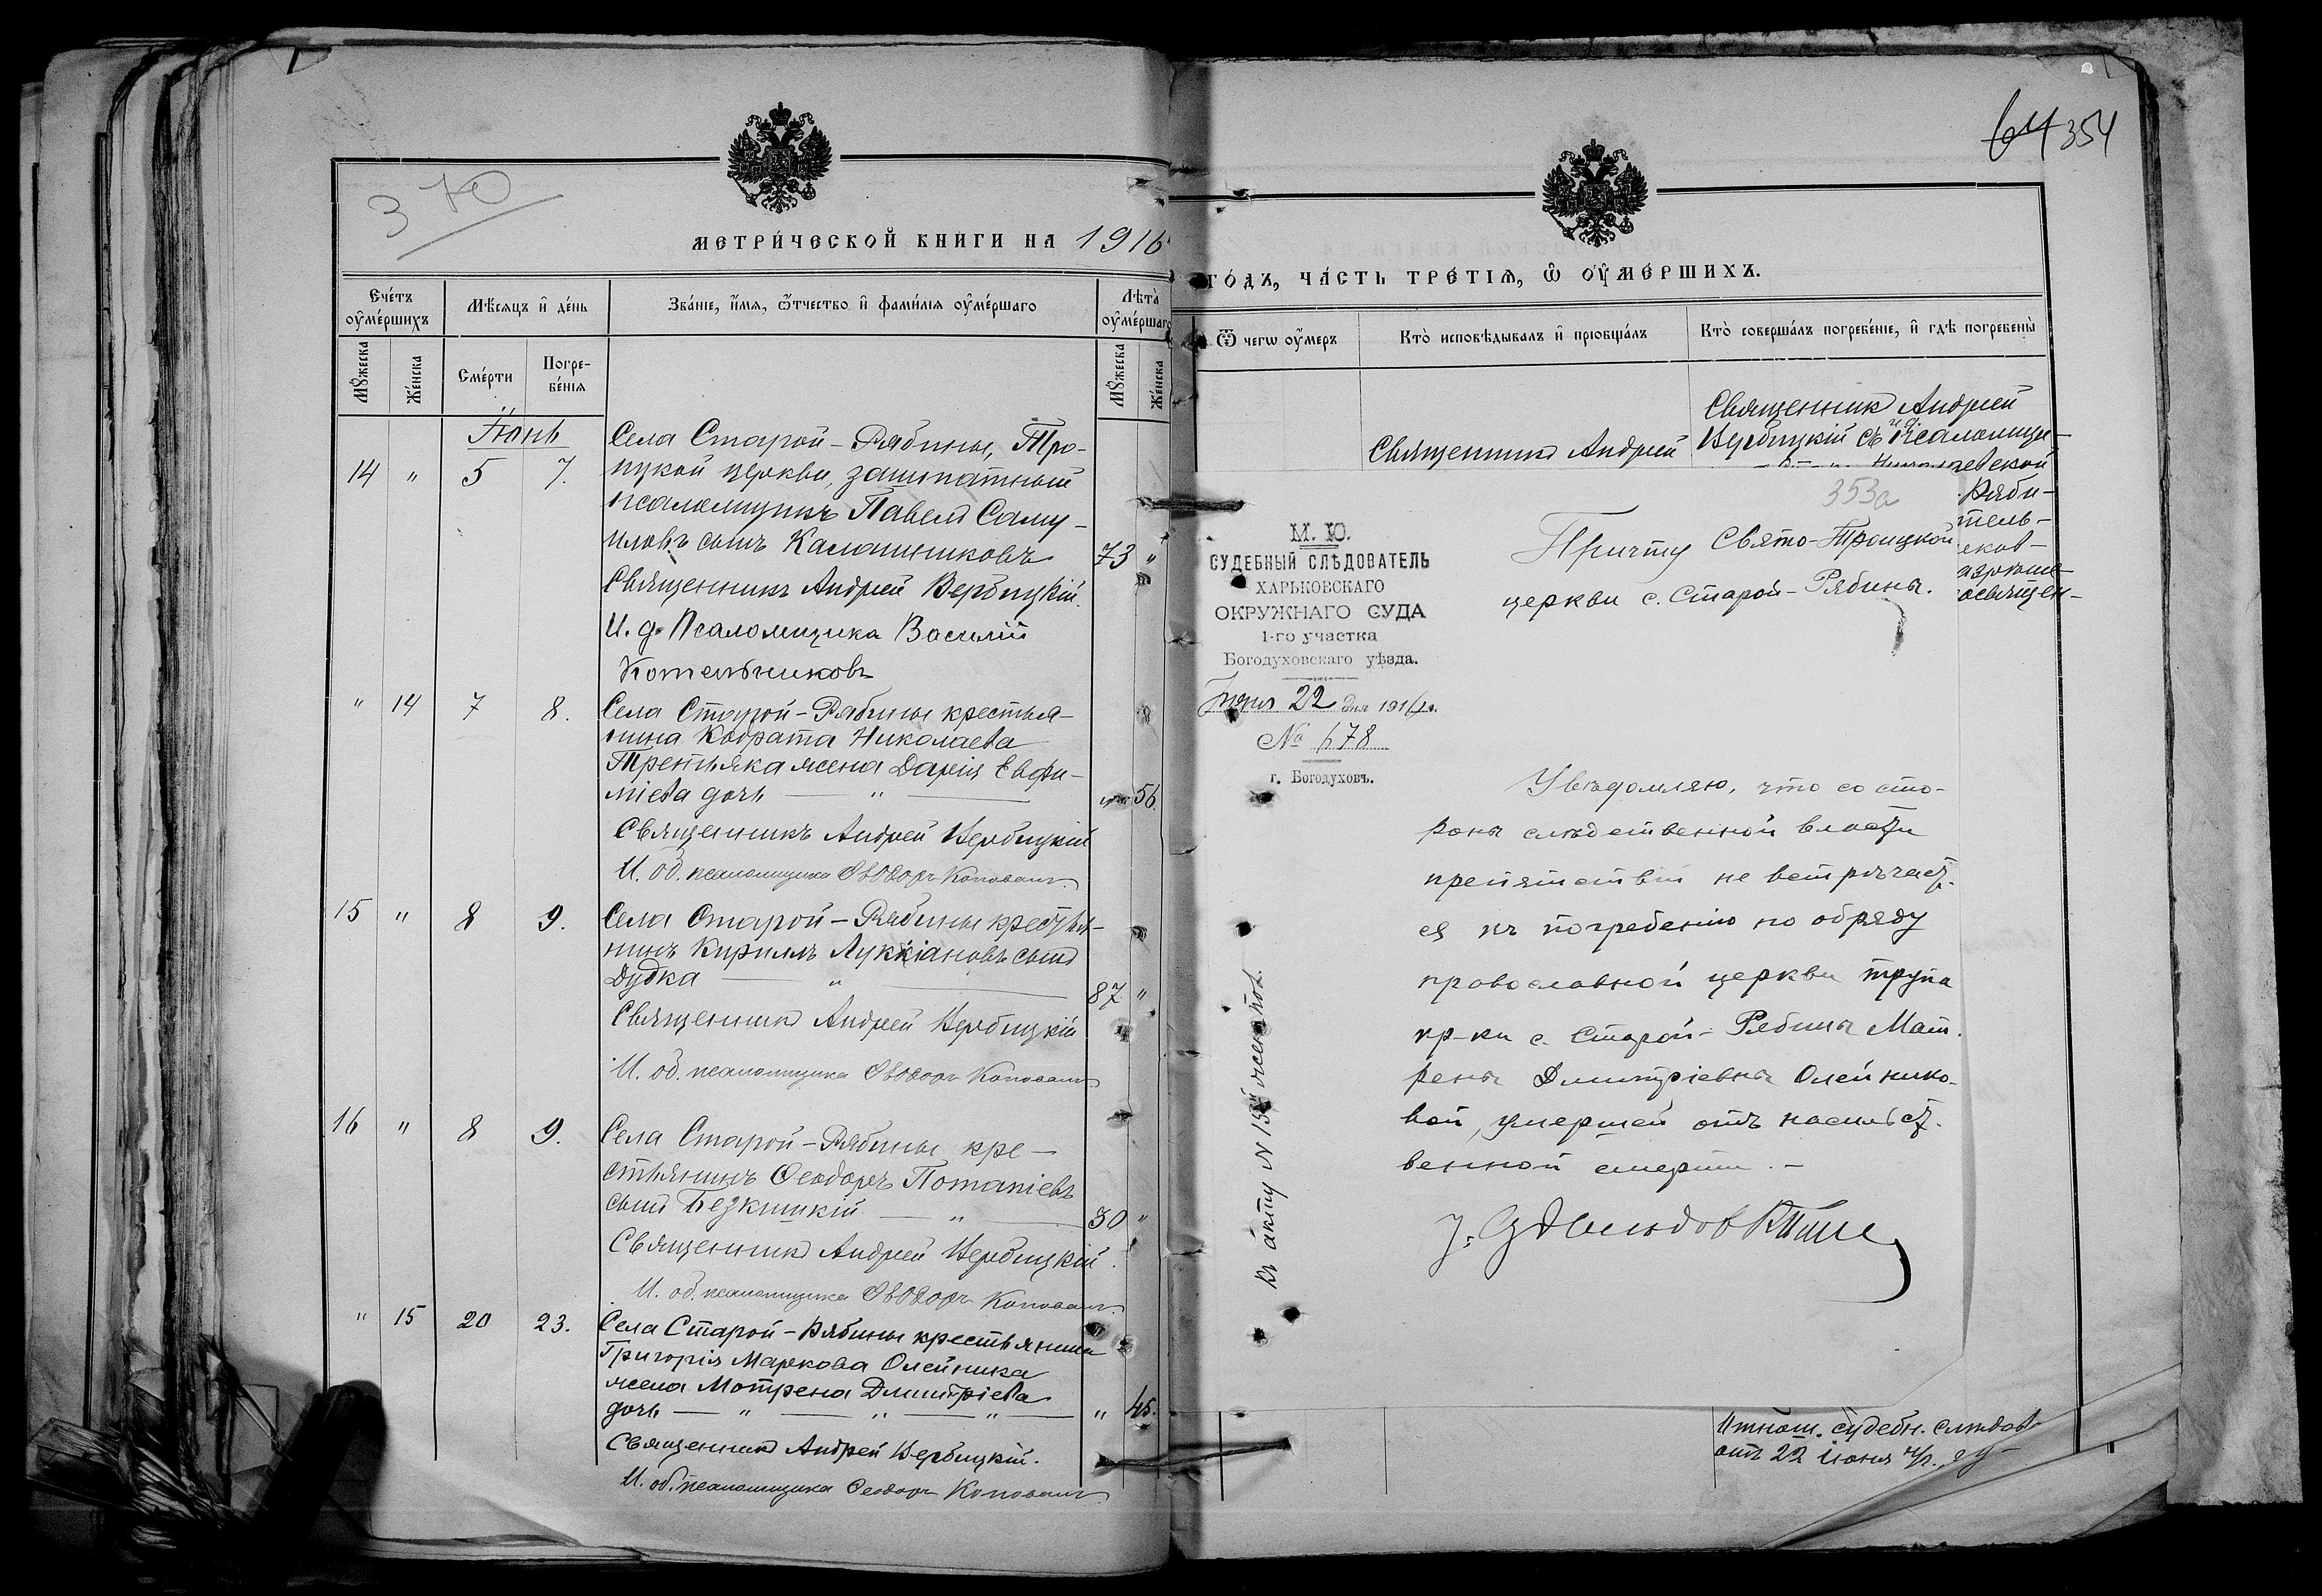 3 Ю
МЕТРИ́ЧЕСКОЙ КНИГИ НА 1916
Счётъ оу҆ме́ршихъ
Мѣсяцъ и҆ де́нь
Зва́ніе, и҆́мя, ѻ҆́тчество и҆ фами́лія оу҆ме́ршаго
Лѣта̀ оу҆ме́ршаго
Мꙋ́жеска
Же́нска
Сме́рти
Погре-
бе́нія
Мꙋ́жеска
Же́нска
Іюнь
14 " 5 7.
Села Старой-Рябины, Тро-
ицкой церкви, заштатный
псаломщикъ Павелъ Саму-
иловъ сынъ Калашниковъ 73 "
Священникъ Андрей Вербицкій.
И. д. Псаломщика Василій
Котельниковъ
" 14 7 8.
Села Старой-Рябины крестья-
нина Кодрата Николаева
Третьяка жена Дарія Евфи-
міева дочь — " — 56.
Священникъ Андрей Вербицкій
И. об. псаломщика Ѳеодоръ Коновалъ.
15 " 8 9.
Села Старой-Рябины крестья-
нинъ Кириллъ Лукіановъ сынъ
Дудка — " — 87 "
Священникъ Андрей Вербицкій
И. об. псаломщика Ѳеодоръ Коновалъ.
16 " 8 9.
Села Старой-Рябины кре-
стьянинъ Ѳеодоръ Потапіевъ
сынъ Безкишкій — " — 30 "
Священникъ Андрей Вербицкій.
И. об. псаломщика Ѳеодоръ Коновалъ.
" 15 20 23.
Села Старой-Рябины крестьянина
Григорія Маркова Олейника
жена Мотрена Димитріева
дочь — " — " — " — " 45.
Священникъ Андрей Вербицкій.
И. об. псаломщика Ѳеодоръ Коновалъ.
64 354
ГО́ДЪ, ЧА́СТЬ ТРЕ́ТІѦ, Ѡ҆ ОУ҆МЕ́РШИХЪ.
Ѿ чегѡ оу҆́меръ
Кто̀ исповѣдывалъ и҆ пріобща́лъ
Кто̀ соверша́лъ погребе́ніе, и҆ гдѣ погребены̀
Священникъ Андрей
Священникъ Андрей
Вербицкій съ и. д. Псаломщи-
евской
353а
Ряби-
тель-
еков-
азрѣше-
освящен-
М. Ю.
СУДЕБНЫЙ СЛѢДОВАТЕЛЬ
ХАРЬКОВСКАГО
ОКРУЖНАГО СУДА
1-го участка
Богодуховскаго уѣзда.
Іюня 22 дня 1916 г.
№ 678
г. Богодуховъ.
Къ акту N 15й женской.
Причту Свято-Троицкой
церкви с. Старой-Рябины.
Увѣдомляю, что со сто-
роны слѣдственной власти
препятствій не встрѣчает-
ся къ погребенію по обряду
православной церкви трупа
кр-ки с. Старой-Рябины Мат-
рены Дмитріевны Олейнико-
вой, умершей отъ насильст-
венной смерти. –
Отнош. судебн. слѣдов.
отъ 22 іюня